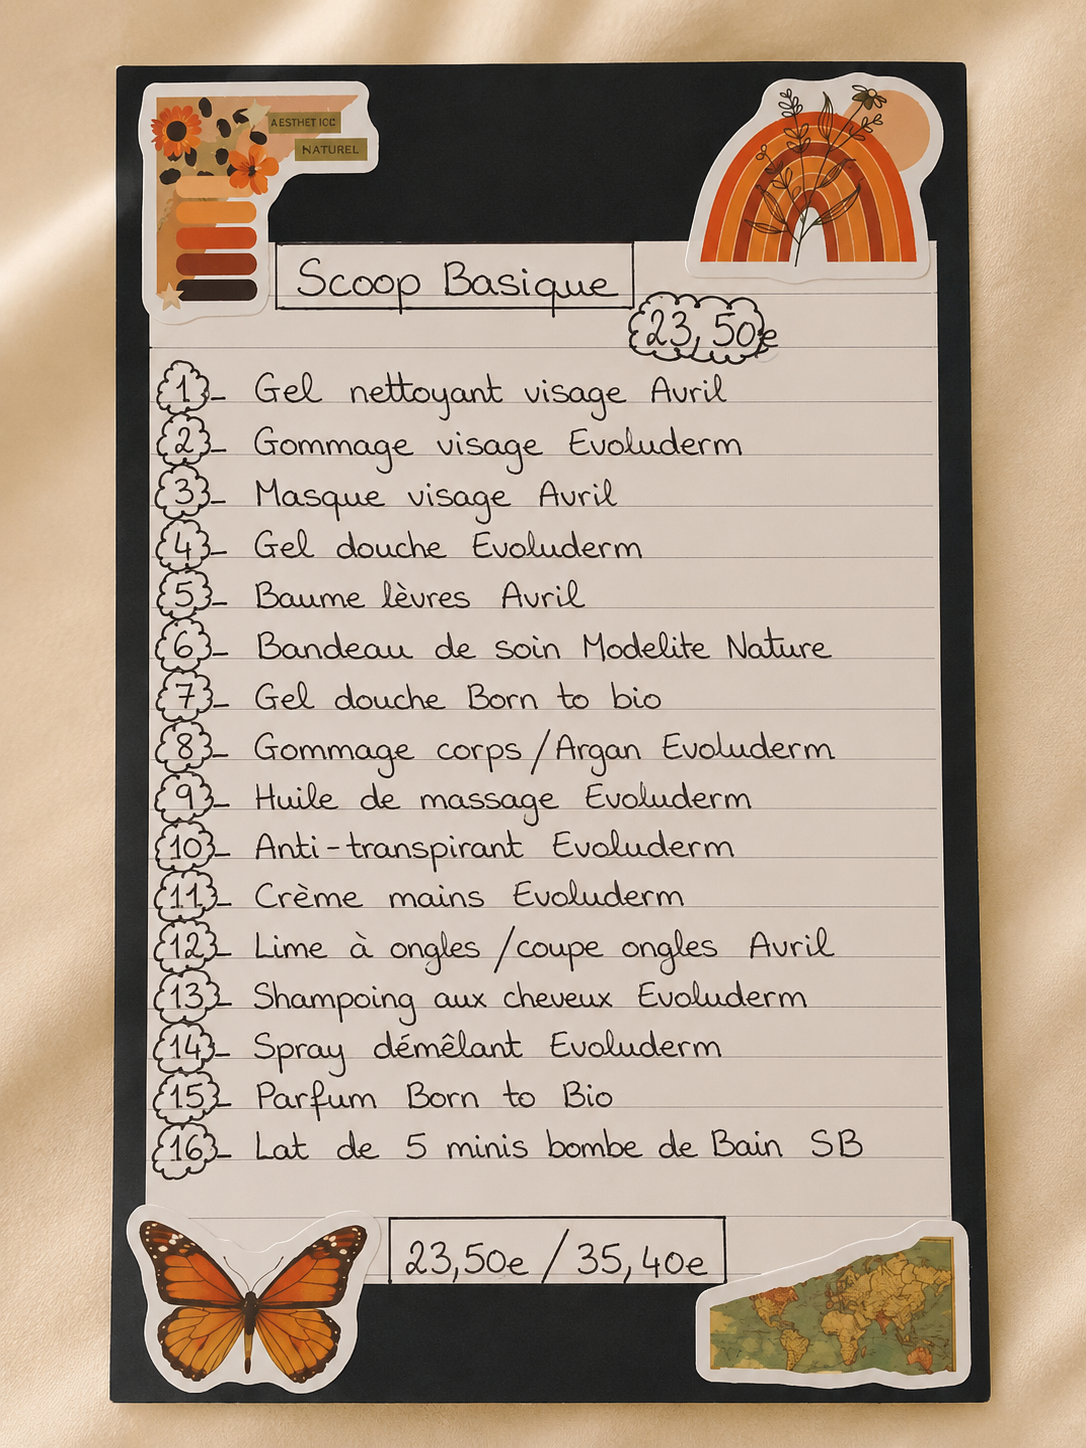 AESTHETICC
NATUREL
Scoop Basique
23,50e
1- Gel nettoyant visage Avril
2- Gommage visage Evoluderm
3- Masque visage Avril
4- Gel douche Evoluderm
5- Baume lèvres Avril
6- Bandeau de soin Modelite Nature
7- Gel douche Born to bio
8- Gommage corps /Argan Evoluderm
9- Huile de massage Evoluderm
10- Anti-transpirant Evoluderm
11- Crème mains Evoluderm
12- Lime à ongles /coupe ongles Avril
13- Shampoing aux cheveux Evoluderm
14- Spray démêlant Evoluderm
15- Parfum Born to Bio
16- Lat de 5 minis bombe de Bain SB
23,50e / 35,40e